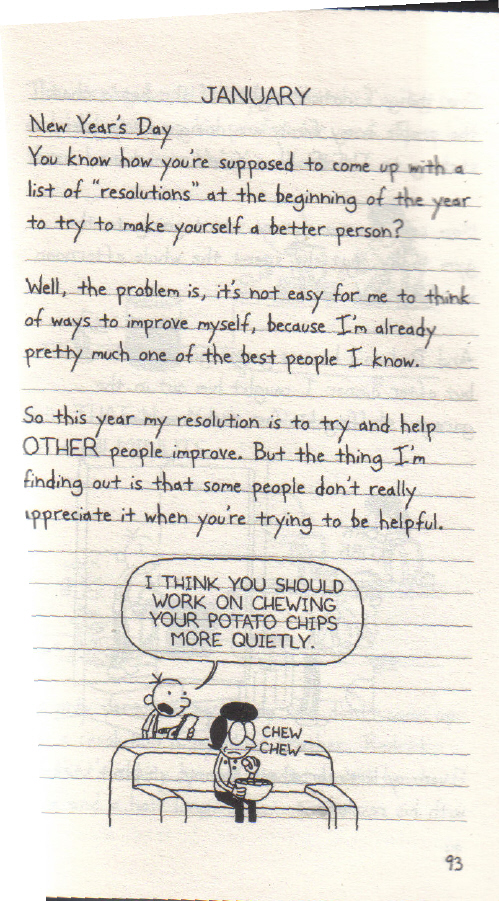 JANUARY
New Year's Day
You know how you're supposed to come up with a
list of "resolutions" at the beginning of the year
to try to make yourself a better person?
Well, the problem is, it's not easy for me to think
of ways to improve myself, because I'm already
pretty much one of the best people I know.
So this year my resolution is to try and help
OTHER people improve. But the thing I'm
finding out is that some people don't really
appreciate it when you're trying to be helpful.
I THINK YOU SHOULD
WORK ON CHEWING
YOUR POTATO CHIPS
MORE QUIETLY.
CHEW
CHEW
93